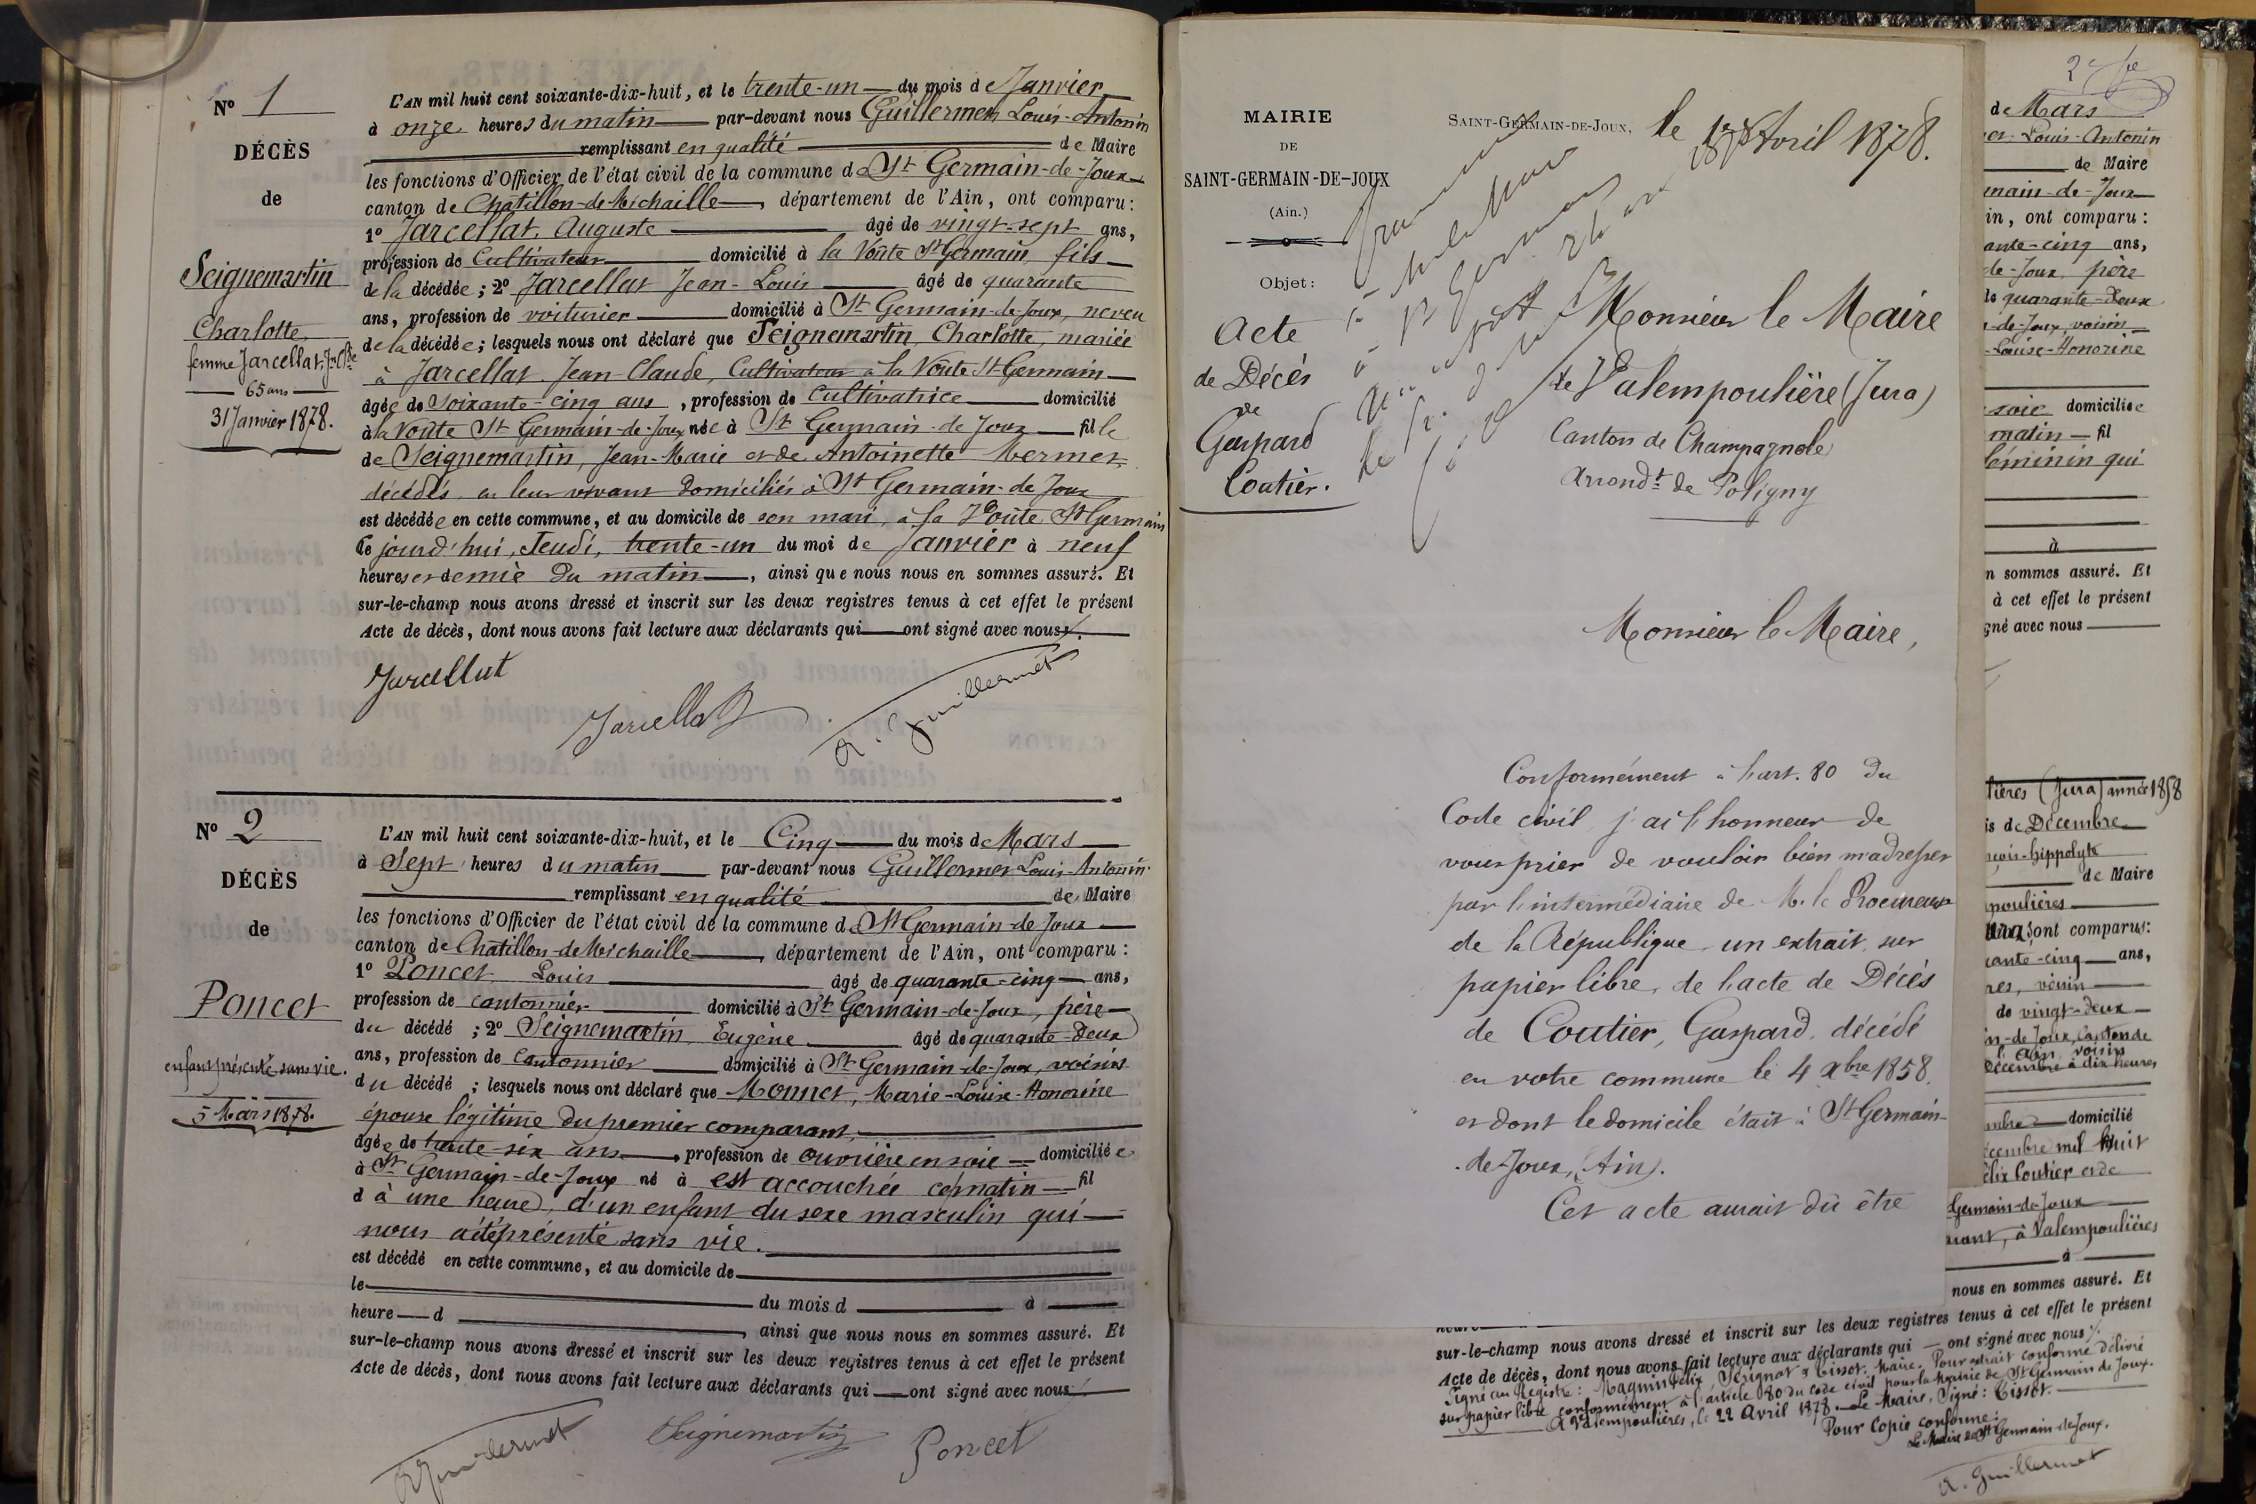 N° 1
DÉCÈS
de
Seignemartin
Charlotte
femme Jarcellat Jn Cde
65 ans
31 Janvier 1878.
L'AN mil huit cent soixante-dix-huit, et le trente-un du mois de Janvier
à onze heures du matin par-devant nous Guillermet Louis-Antonin
remplissant en qualité de Maire
les fonctions d'Officier de l'état civil de la commune de St Germain-de-Joux
canton de Chatillon-de-Michaille, département de l'Ain, ont comparu :
1° Jarcellat, Auguste âgé de vingt-sept ans,
profession de Cultivateur domicilié à la Voûte St Germain, fils
de la décédée ; 2° Jarcellat Jean-Louis âgé de quarante
ans, profession de voiturier domicilié à St Germain-de-Joux, neveu
de la décédée ; lesquels nous ont déclaré que Seignemartin, Charlotte, mariée
à Jarcellat Jean-Claude, Cultivateur à la Voûte St Germain
âgée de Soixante-cinq ans, profession de Cultivatrice domicilié
à la Voûte St Germain-de-Joux née à St Germain-de-Joux fille
de Seignemartin, Jean-Marie et de Antoinette Mermet,
décédés en leur vivant domiciliés à St Germain-de Joux
est décédée en cette commune, et au domicile de son mari, à la Voûte St Germain
le jourd'hui, Jeudi, trente-un du moi de Janvier à neuf
heures et demie du matin, ainsi que nous nous en sommes assuré. Et
sur-le-champ nous avons dressé et inscrit sur les deux registres tenus à cet effet le présent
Acte de décès, dont nous avons fait lecture aux déclarants qui ont signé avec nous.
Jarcellat
Jarcellat
A. Guillermet
N° 2
DÉCÈS
de
Poncet
enfant présenté sans vie.
5 Mars 1878.
L'AN mil huit cent soixante-dix-huit, et le Cinq du mois de Mars
à Sept heures du matin par-devant nous Guillermet Louis-Antonin
remplissant en qualité de Maire
les fonctions d'Officier de l'état civil de la commune de St Germain-de-Joux
canton de Chatillon-de-Michaille, département de l'Ain, ont comparu :
1° Poncet, Louis âgé de quarante-cinq ans,
profession de cantonnier domicilié à St Germain-de-Joux, père
du décédé ; 2° Seignemartin, Eugène âgé de quarante-Deux
ans, profession de Cantonnier domicilié à St Germain-de-Joux, voisin
du décédé ; lesquels nous ont déclaré que Monnet, Marie-Louise-Honorine
épouse légitime du premier comparant,
âgée de trente-six ans, profession de ouvrière en soie domiciliée
à St Germain-de-Joux né à est accouchée ce matin fil
d à une heure, d'un enfant du sexe masculin qui
nous a été présenté sans vie.
est décédé en cette commune, et au domicile de
le du mois d à
heure d , ainsi que nous nous en sommes assuré. Et
sur-le-champ nous avons dressé et inscrit sur les deux registres tenus à cet effet le présent
Acte de décès, dont nous avons fait lecture aux déclarants qui ont signé avec nous
A Guillermet
Seignemartin
Poncet
MAIRIE
DE
SAINT-GERMAIN-DE-JOUX
(Ain.)
Objet :
Acte
de Décès
de
Gaspard
Coutier.
SAINT-GERMAIN-DE-JOUX, le Avril 1878.
Monsieur le Maire
de Valempoulière (Jura)
Canton de Champagnole
Arrondt de Poligny
Monsieur le Maire,
Conformément à l'art. 80 du
Code civil j'ai l'honneur de
vous prier de vouloir bien m'adresser
par l'intermédiaire de M. le Procureur
de la République un extrait sur
papier libre, de l'acte de Décès
de Coutier, Gaspard, décédé
en votre commune le 4 Xbre 1858.
et dont le domicile était à St Germain-
-de-Joux, (Ain).
Cet acte aurait dû être
de Mars
Louis-Antonin
de Maire
main-de-Joux
in, ont comparu :
ante-cinq ans,
de-Joux, père
de quarante-Deux
-de-Joux, voisin
-Louise-Honorine
soie domiciliée
matin fil
féminin qui
à
n sommes assuré. Et
à cet effet le présent
gné avec nous
lières (Jura) année 1858
is de Décembre
çois-hippolyte
de Maire
poulières
sont comparus :
ante-cinq ans,
res, voisin
de vingt-deux
in-de Joux, Canton de
l'Ain, voisin
Décembre à dix heures
domicilié
écembre mil huit
élix Coutier et de
Germain-de-Joux
vivant, à Valempoulières
à
nous en sommes assuré. Et
sur-le-champ nous avons dressé et inscrit sur les deux registres tenus à cet effet le présent
Acte de décès, dont nous avons fait lecture aux déclarants qui ont signé avec nous
Signé au Registre : Maquin Félix Sérignot & Cissot, Maire. Pour extrait conforme Délivré
sur papier libre conformément à l'article 80 du Code civil pour la Mairie de St Germain de Joux.
A Valempoulières, le 22 Avril 1878. Le Maire, Signé : Cissot.
Pour Copie conforme :
Le Maire de St Germain-de-Joux.
A. Guillermet